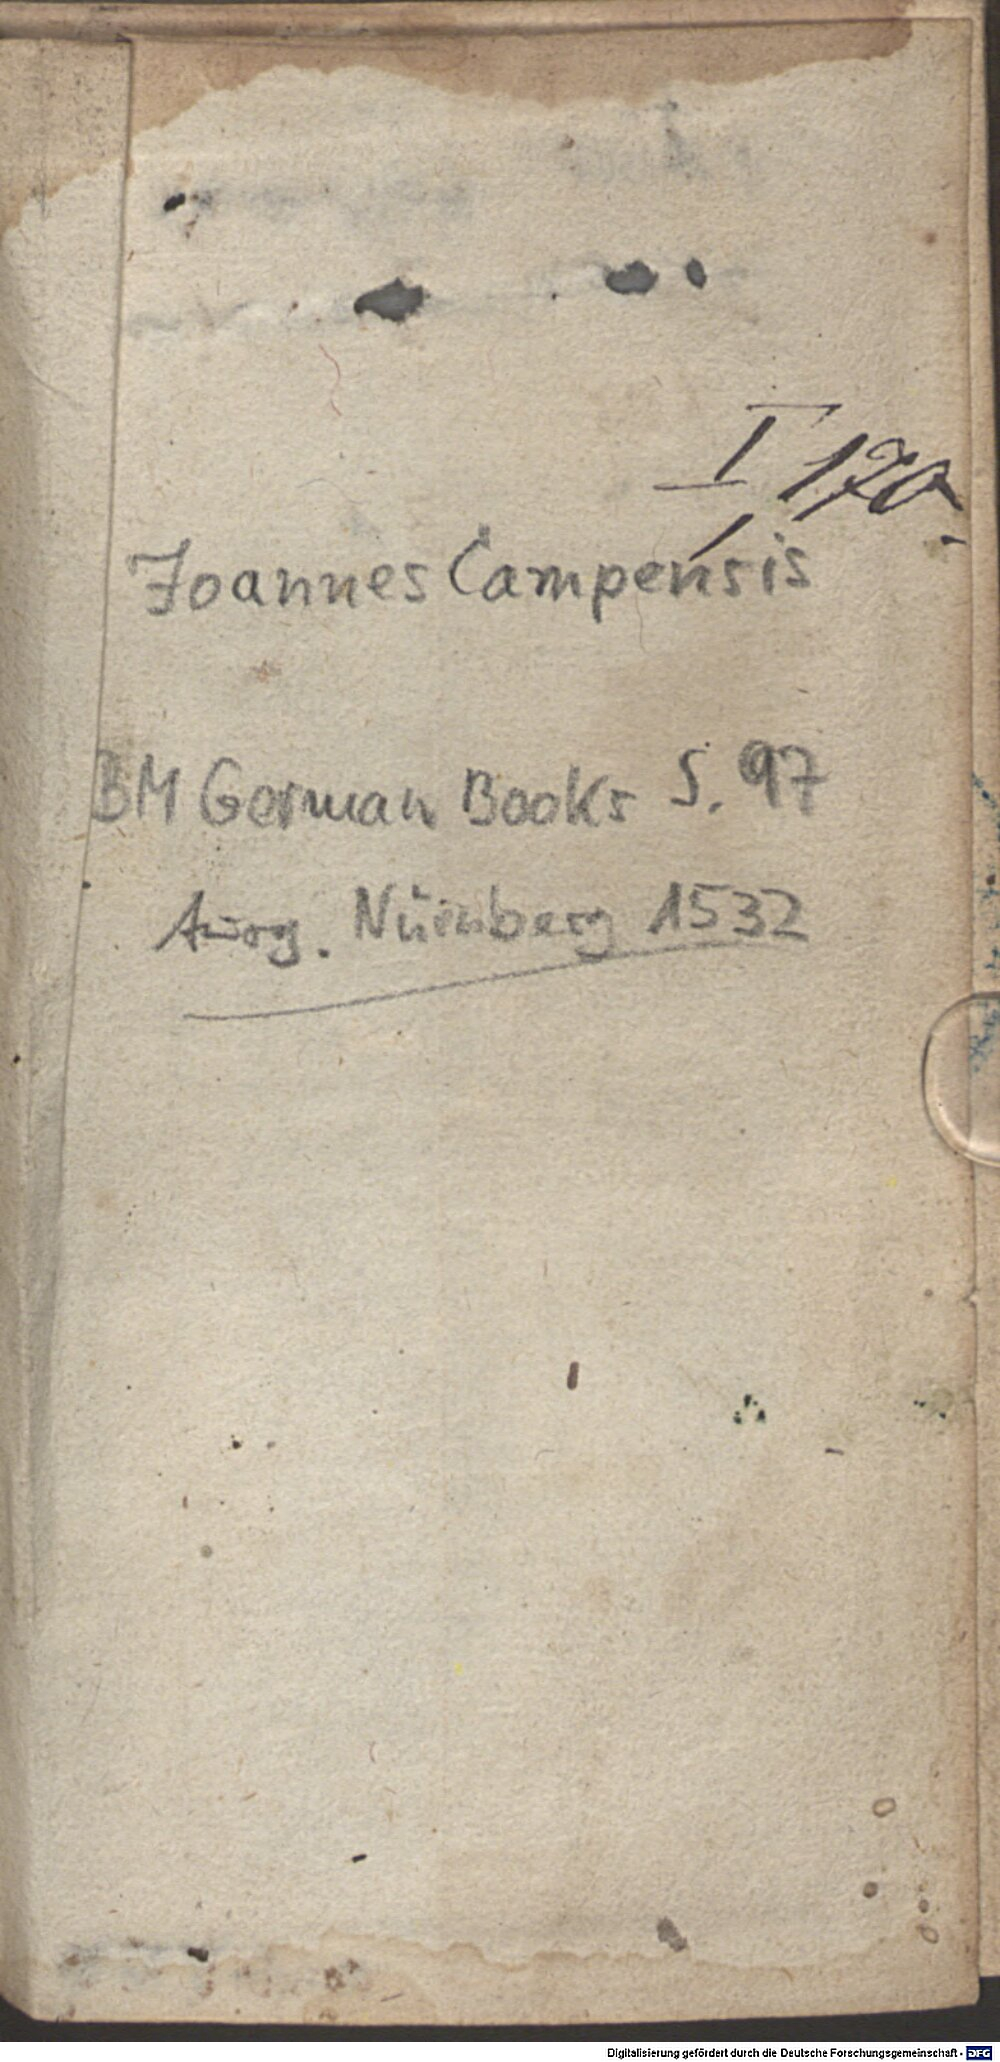 I, 170.
Joannes Campensis
BM German Books S. 97
Ausg. Nürnberg 1532
Digitalisierung gefördert durch die Deutsche Forschungsgemeinschaft - DFG